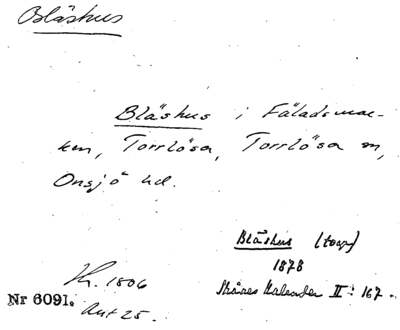 Bläshus
Bläshus i Fäladsmar-
ken, Torrlösa, Torrlösa sn,
Onsjö hd.
Bläshus (torp)
1878
Skånes Kalender II: 167.
1806
Nr 6091.
Akt 25.